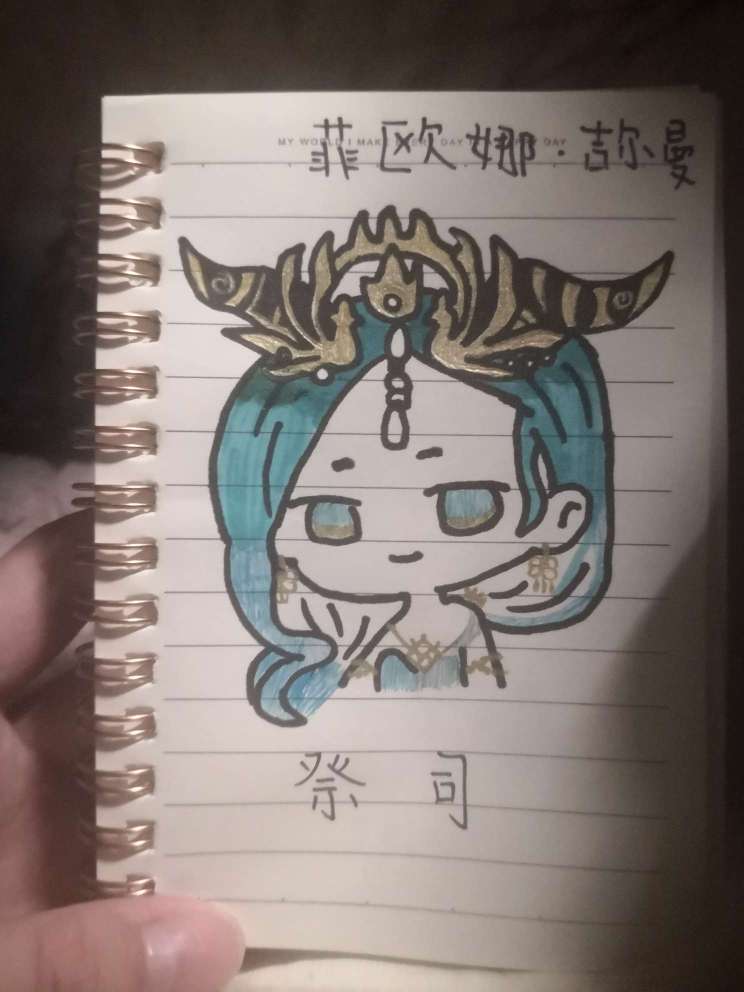 菲欧娜·吉尔曼
MY WORLD I MAKE EVERY DAY DAY
祭司